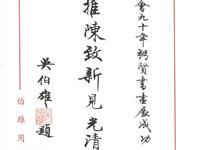 會九十年朝賢書畫展成功
推陳致新見光清
吳伯雄題
伯雄用